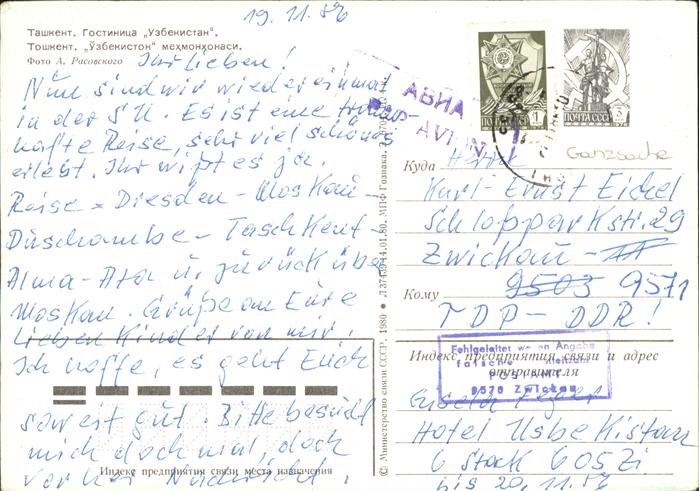 19.11.86
Ташкент. Гостиница „Узбекистан".
Тошкент. „Ўзбекистон" меҳмонхонаси.
Фото А. Расовского
Ihr Lieben!
Nun sind wir wieder einmal
in der SU. Es ist eine
hafte Reise, sehr viel schönes
erlebt. Ihr wißt es ja.
Reise - Dresden - Moskau -
Duschambe - Taschkent -
Alma-Ata u. zurück über
Moskau. Grüße an Eure
lieben Kinder von mir
Ich hoffe, es geht Euch
soweit gut. Bitte besucht
mich doch mal, doch
vorher Nachricht!
Индекс предприятия связи места назначения
© Министерство связи СССР, 1980 МПФ Гознака.
АВИА
PAR AVION
ПОЧТА СССР 1
ПОЧТА СССР 3
Ganzsache
Куда
Herrn
Karl-Ernst Eickel
Schloßparkstr. 29
Zwickau -
Кому
9503 9571
TDP - DDR!
Fehlgeleitet wegen Angabe
falscher Postleitzahl
POSTAMT
9570 Zwickau
Индекс предприятия связи и адрес
отправителя
Gisela
Hotel Usbekistan
6 Stock 605 Zi
bis 20.11.86